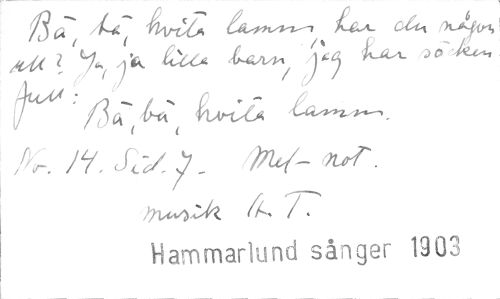 Bä, bä, hvita lamm, har du någon
ull? Ja, ja lilla barn, jag har säcken
full:
Bä, bä, hvita lamm.
No. 14. Sid. 7. Mel-not.
musik A. T.
Hammarlund sånger 1903